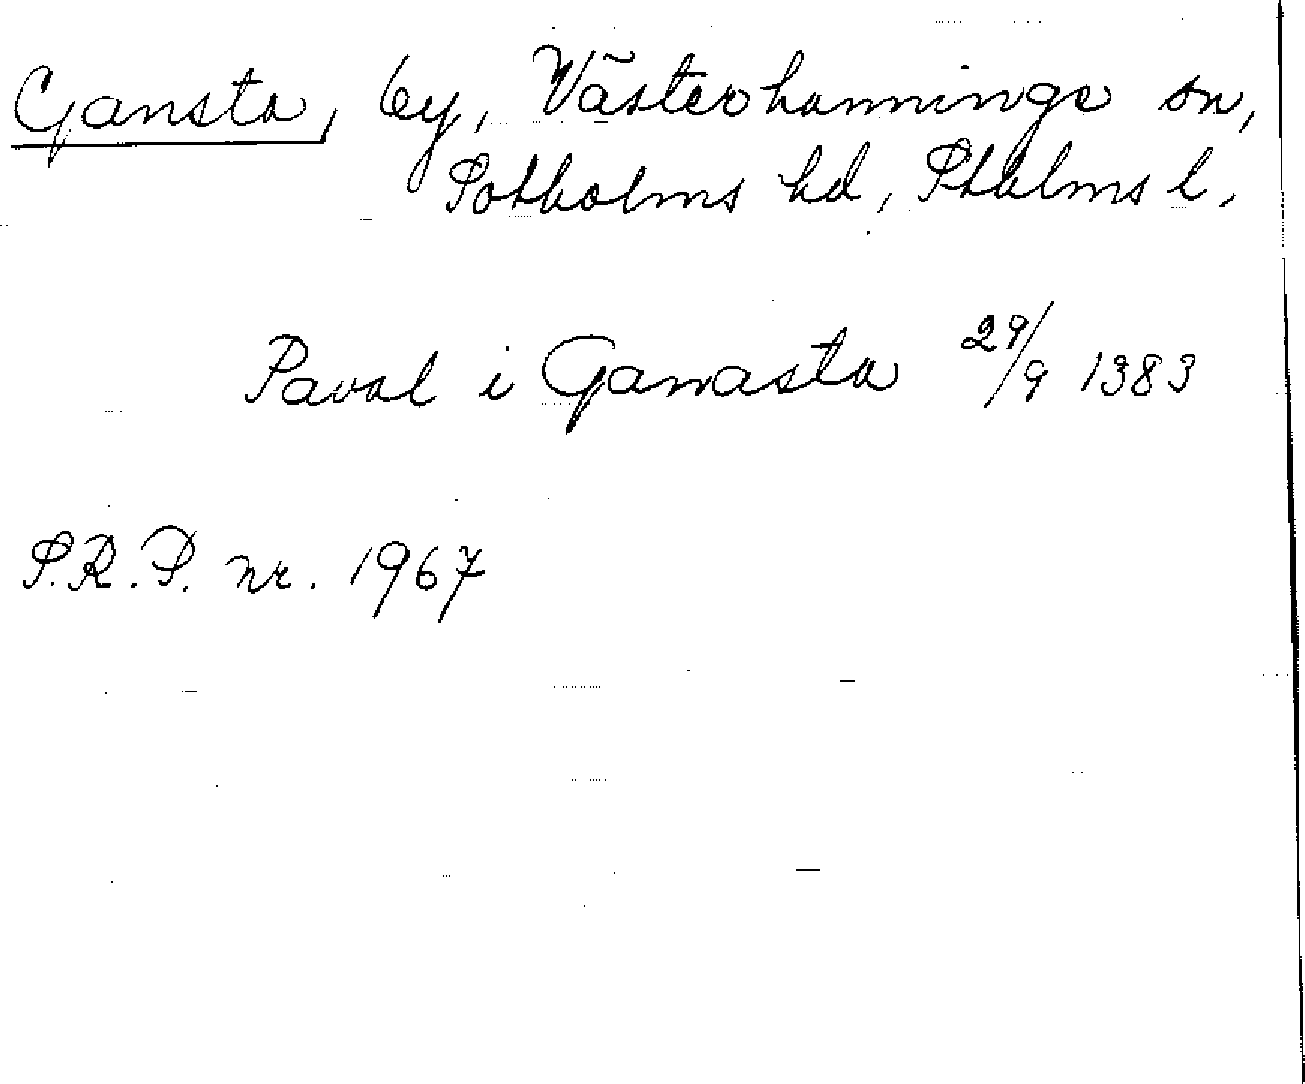 Gansta, by, Västerhanninge sn,
Sotholms hd, Sthlms l.
Paval i Ganasta 29/9 1383
S.R.P. nr. 1967